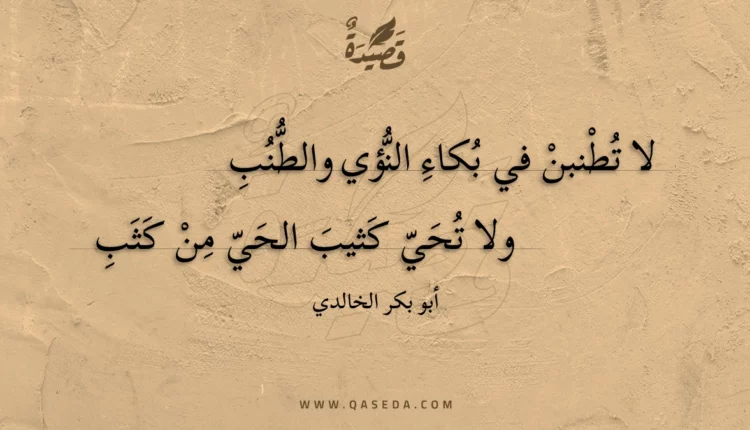 قَصِيْدَةٌ
لا تُطْنبنْ في بُكاءِ النُّؤي والطُّنُبِ
ولا تُحَيّ كَثيبَ الحَيّ مِنْ كَثَبِ
أبو بكر الخالدي
WWW.QASEDA.COM